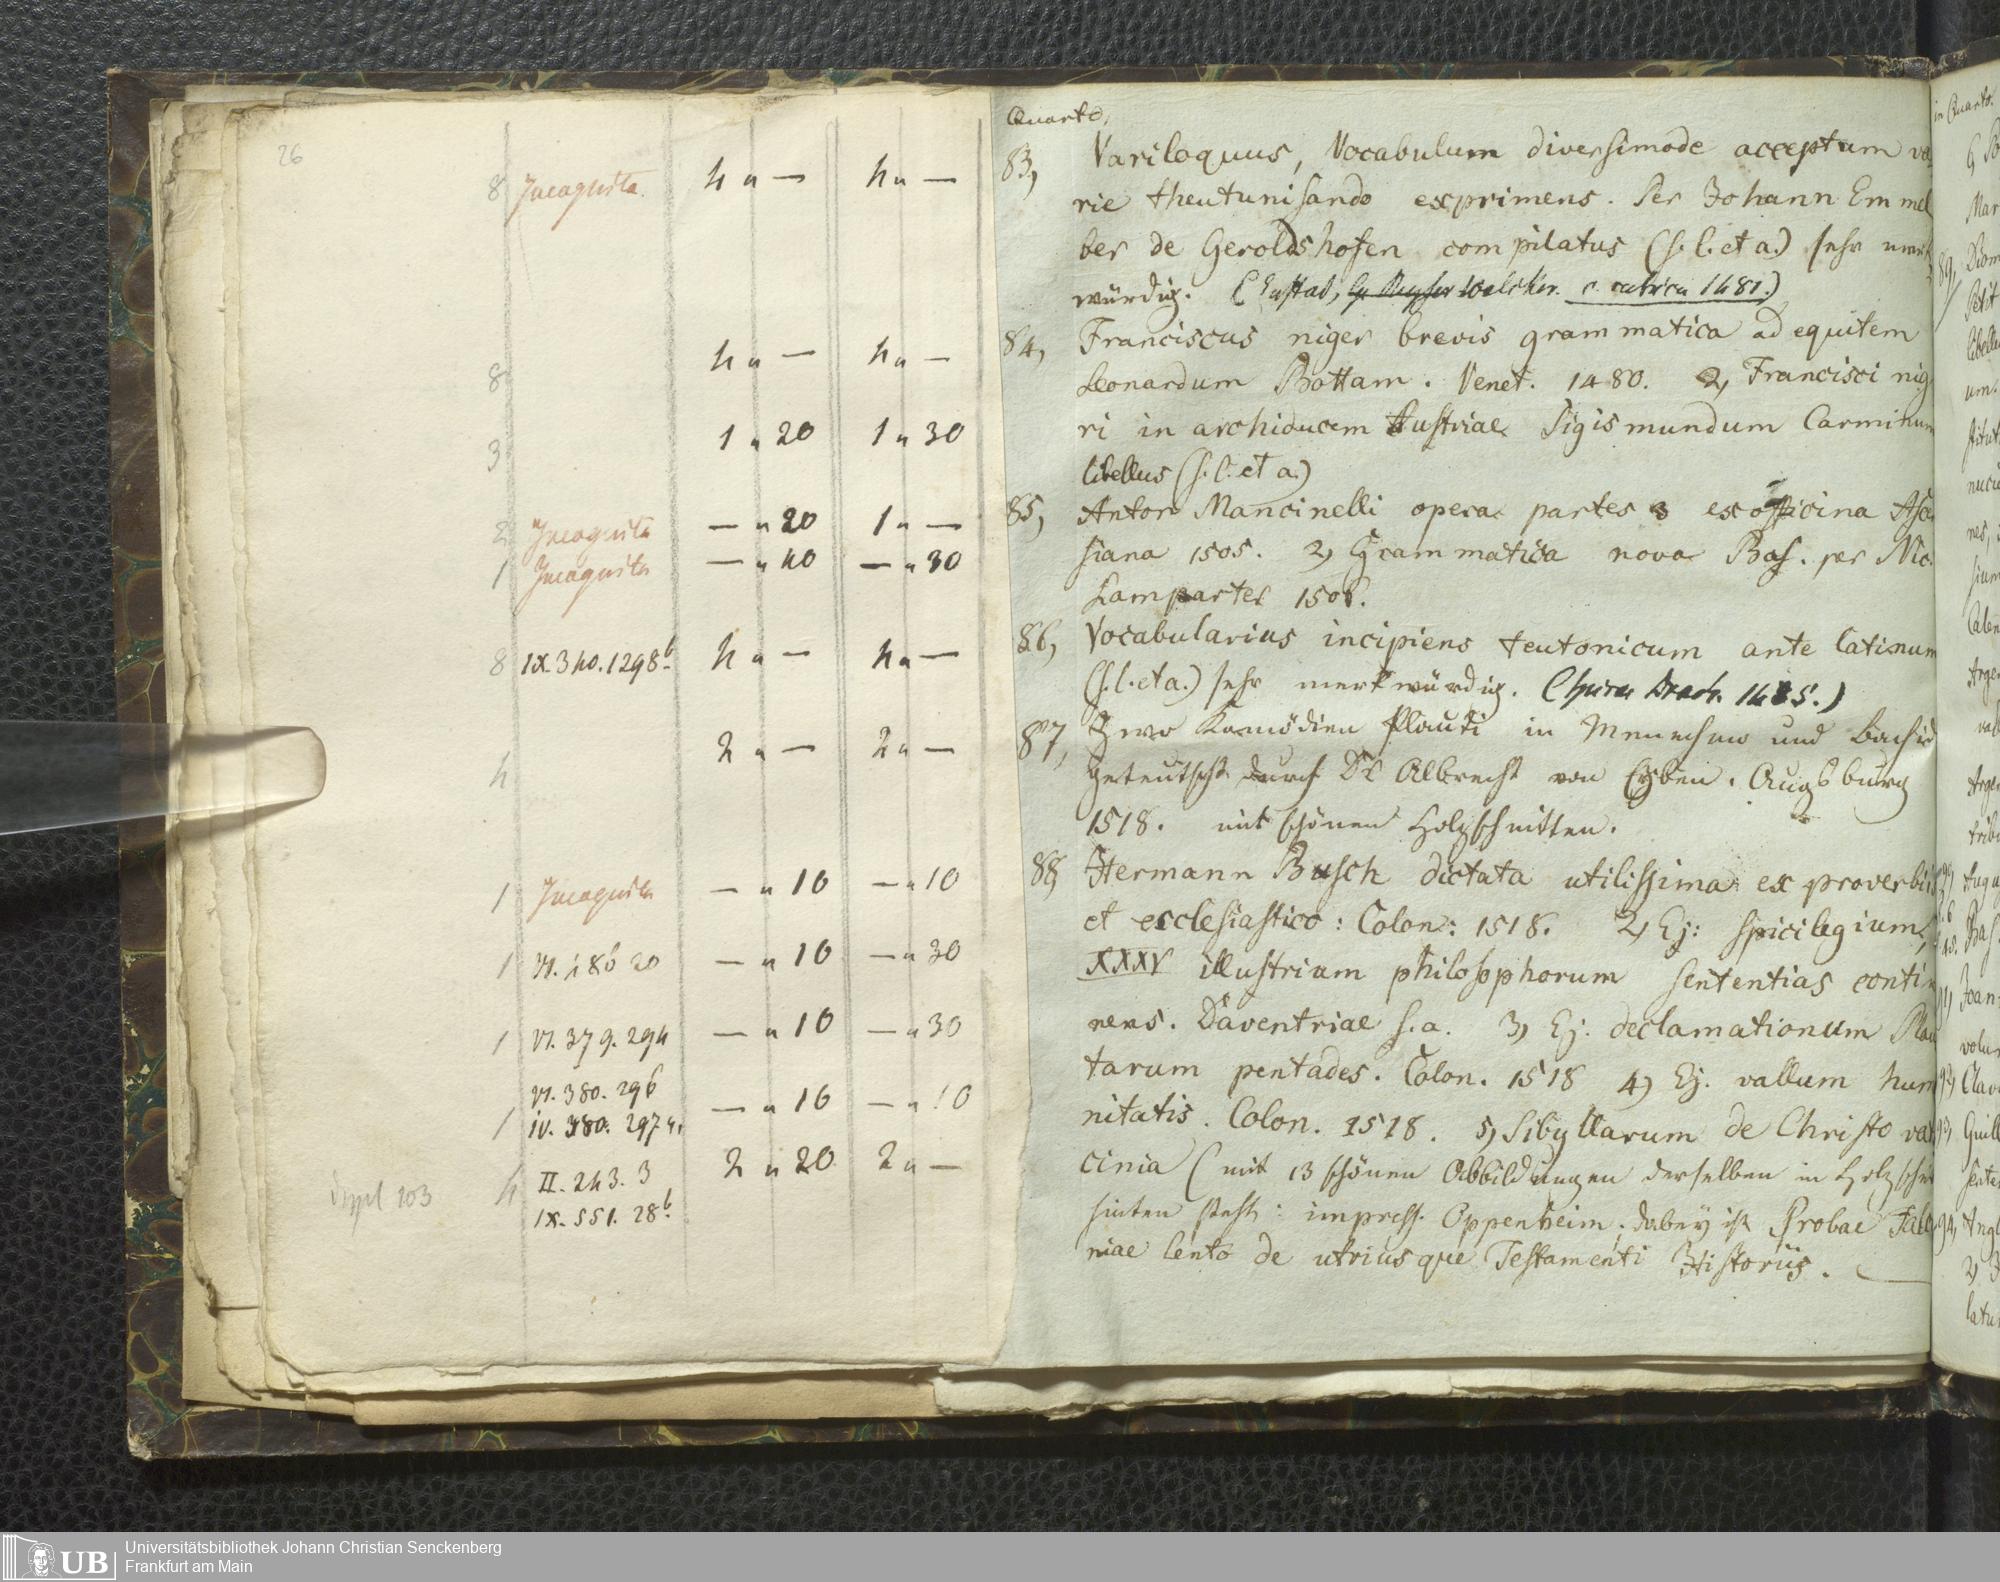 26
8 Incognita 4 " — 4 " —
8 4 " — 4 " —
3 1 " 20 1 " 30
2 Incognita — " 20 1 " —
1 Incognita — " 40 — " 30
8 IX. 340. 1298b. 4 " — 4 " —
4 2 " — 2 " —
1 Incognita — " 10 — " 10
1 VI. 186 20 — " 10 — " 30
1 VI. 379. 294 — " 10 — " 30
VI. 380. 296
1 IV. 380. 297 — " 10 — " 10
4 II. 243. 3 2 " 20 2 " —
103
IX. 551. 28b.
Quarto,
83, Variloquus, Vocabulum diversimode acceptum va
rie theutunisando exprimens. Per Johann Emmel
ber de Geroldshofen compilatus (s. l. et a.) sehr merk
würdig. c. 1481.)
84, Franciscus niger brevis grammatica ad equitem
Leonardum Bottam. Venet. 1480. 2, Francisci nig
ri in archiducem Austriae Sigismundum Carminum
libellus (s. l. et a.)
85, Anton Mancinelli opera partes 3 ex officina Asc
siana 1505. 2, Grammatica nova Bas. per Nic.
Lamparter 1506.
86, Vocabularius incipiens teutonicum ante latinum
(s. l. et a.) sehr merkwürdig. (Spirae Drach. 1485.)
87, Zwo Komödien Plauti in Menechmo und Bachid
geteutscht durch Dr Albrecht von Eyben. Augsburg
1518. mit schönen Holzschnitten.
88, Hermann Busch dictata utilissima ex proverbiis
et ecclesiastico: Colon: 1518. 2, Ej: spicilegium,
XXXV illustrium philosophorum sententias conti
nens. Daventriae s. a. 3, Ej. declamationum Plau
tarum pentades. Colon. 1518 4, Ej. vallum hum
nitatis. Colon. 1518. 5, Sibyllarum de Christo vati
cinia (mit 13 schönen Abbildungen derselben in Holzschn
hinten steht: impress. Oppenheim, dabey ist Probae Falco
niae Cento de utriusque Testamenti Historiis.
in Quarto.
89,
93,
94,
UB Universitätsbibliothek Johann Christian Senckenberg
Frankfurt am Main